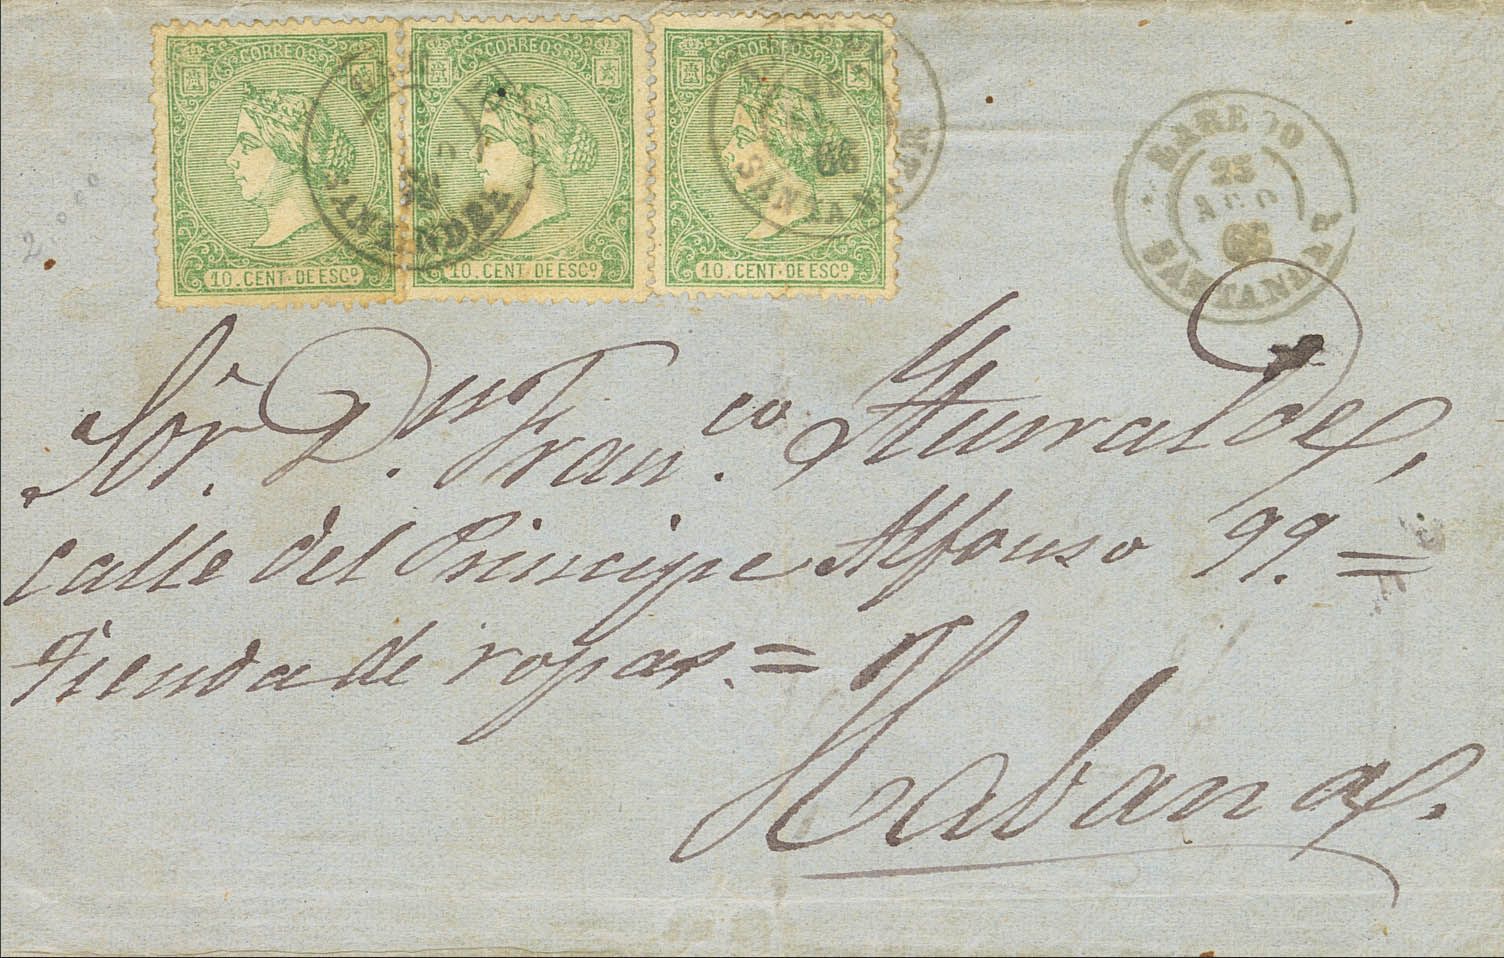 CORREOS CORREOS CORREOS
10. CENT. DE ESCº 10. CENT. DE ESCº 10. CENT. DE ESCº
SANTANDER
66
SANTANDER
LAREDO
25
AGO
66
SANTANDER
Sor. Dn. Franco. Yturralde,
calle del Principe Alfonso 99. =
Tienda de ropas. =
Habana.